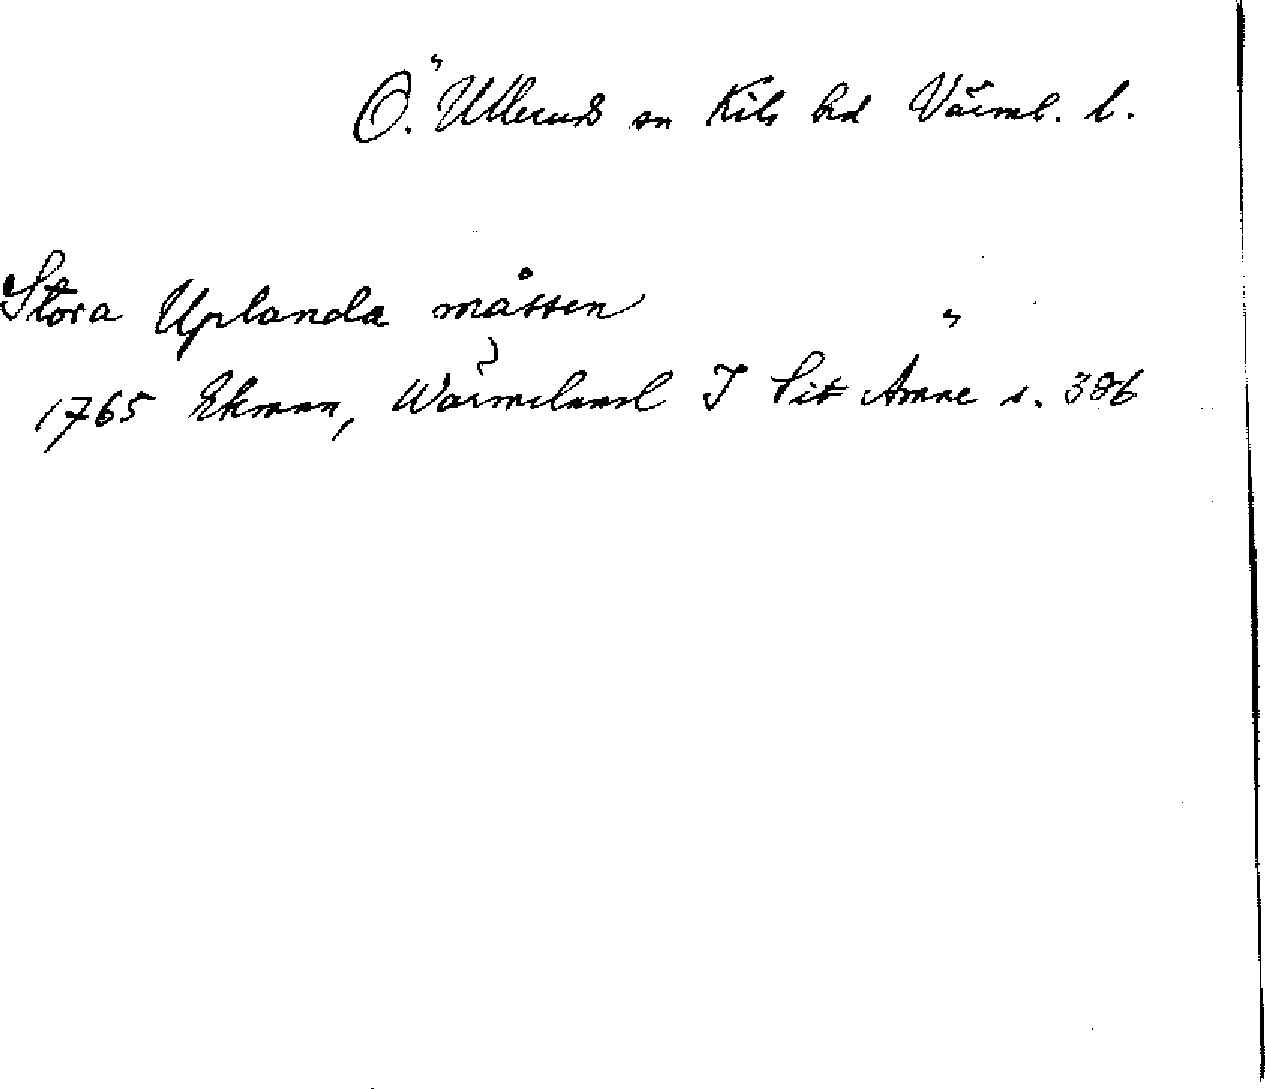 Ö. Ullerud sn Kils hd Värml. l.
Stora Uplanda måssen
1765 Ekman, Wärmeland I Sit Amne s. 386